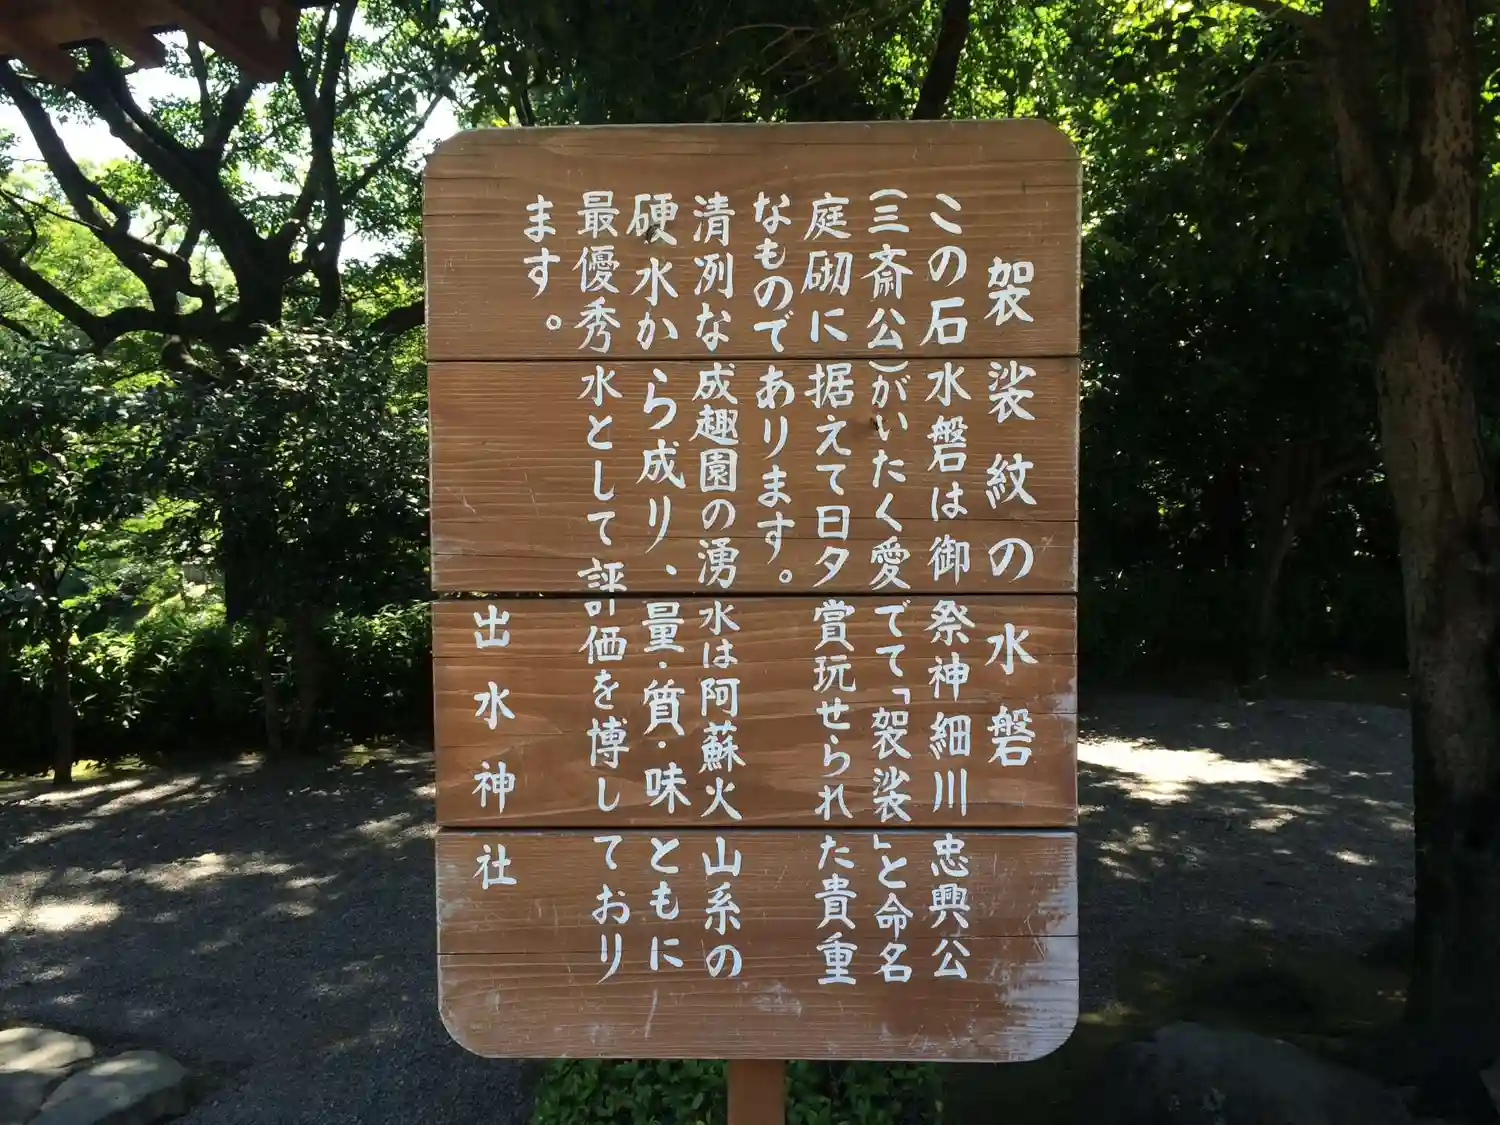 袈裟紋の水磐
この石水磐は御祭神細川忠興公
(三斎公)がいたく愛でて「袈裟」と命名
庭砌に据えて日夕賞玩せられた貴重
なものであります。
清冽な成趣園の湧水は阿蘇火山系の
硬水から成り、量・質・味ともに
最優秀水として評価を博しており
ます。
出水神社